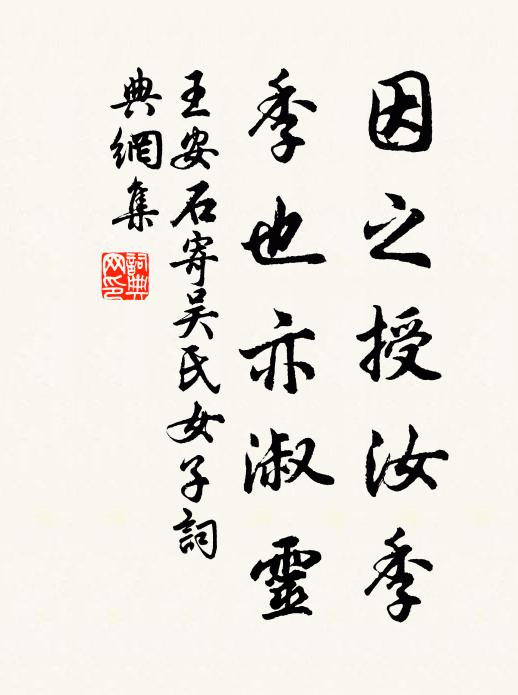 因之授汝季
季也亦淑靈
王安石寄吴氏女子詞
典網集
詞典网印